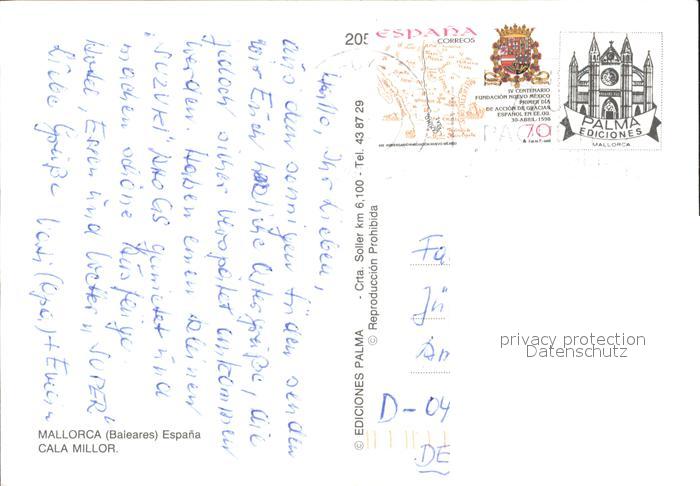 205
ESPAÑA
CORREOS
IV CENTENARIO
FUNDACIÓN NUEVO MÉXICO
PRIMER DÍA
DE ACCIÓN DE GRACIAS
ESPAÑOL EN EE.UU.
30-ABRIL-1598
70
PALMA
EDICIONES
MALLORCA
Hallo, Ihr Lieben,
aus dem sonnigen Süden senden
wir Euch herzliche Ostergrüße, die
jedoch sicher verspätet ankommen
werden. Haben einen kleinen
"SUZUKI" gemietet und
machen schöne Ausflüge.
Hotel, Essen und Wetter "SUPER"
Liebe Grüße (Opa) +
© EDICIONES PALMA - Crta. Soller km 6,100 - Tel. 43 87 29
© Reproducción Prohibida
Fa
Jü
Am
D-04
DE
privacy protection
Datenschutz
MALLORCA (Baleares) España
CALA MILLOR.